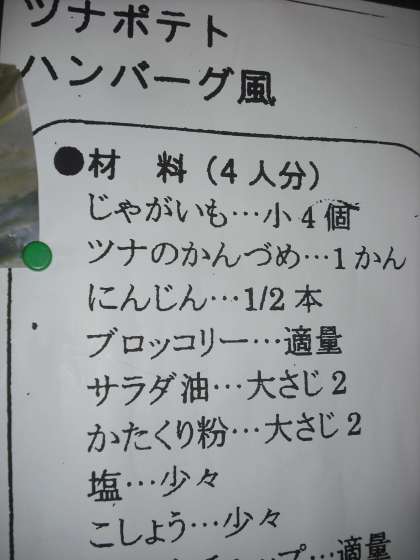 ツナポテト
ハンバーグ風
●材 料（4人分）
じゃがいも…小4個
ツナのかんづめ…1かん
にんじん…1/2本
ブロッコリー…適量
サラダ油…大さじ2
かたくり粉…大さじ2
塩…少々
こしょう…少々
…適量